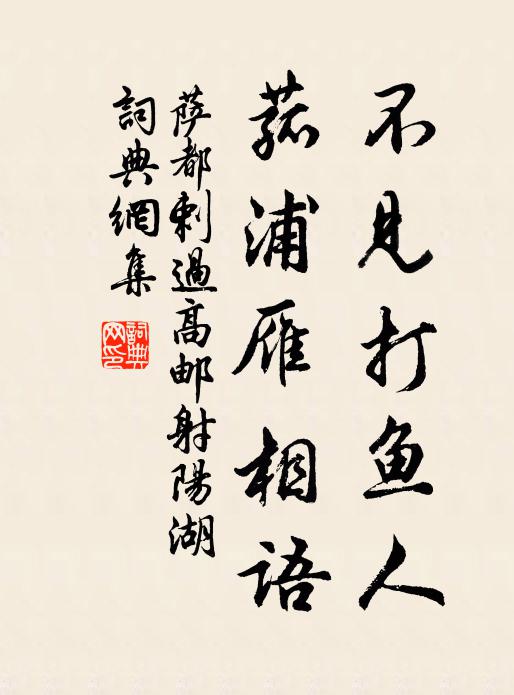 不见打鱼人
菰浦雁相语
萨都剌過高邮射陽湖
詞典網集
詞典網印